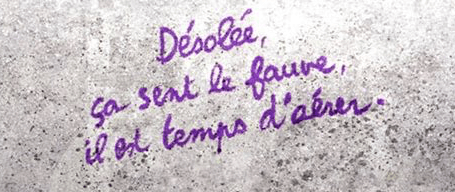 Désolée,
ça sent le fauve,
il est temps d'aérer.